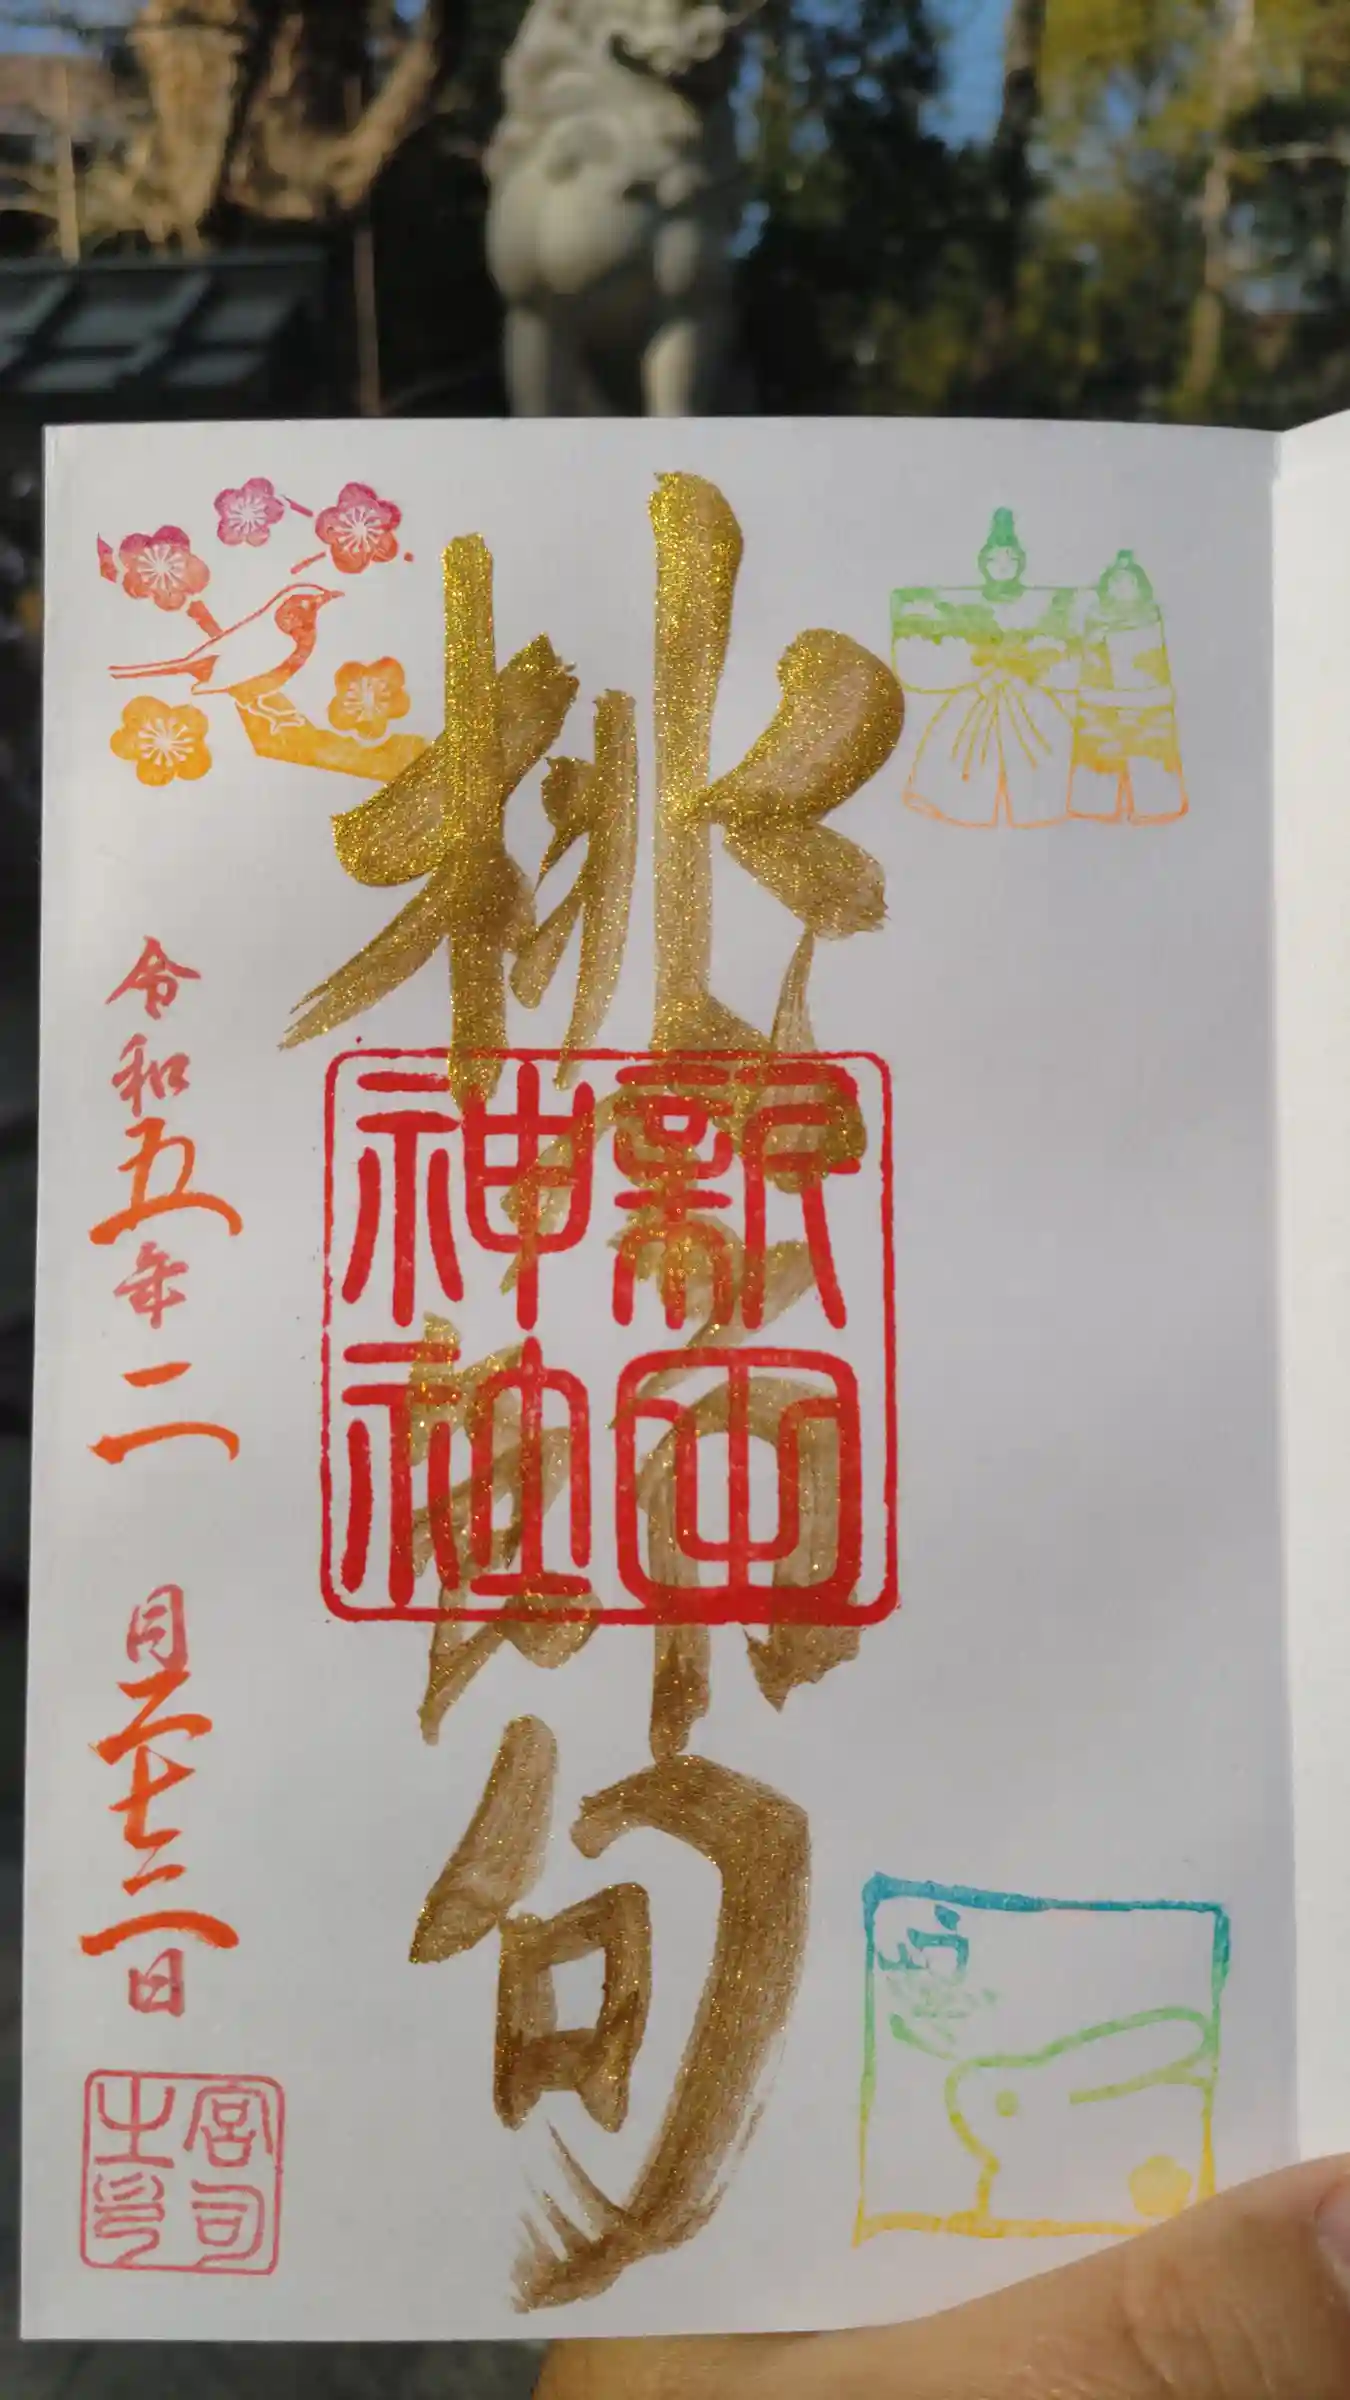 桃の節句
新田
神社
令和五年二月二十二日
宮司
之印